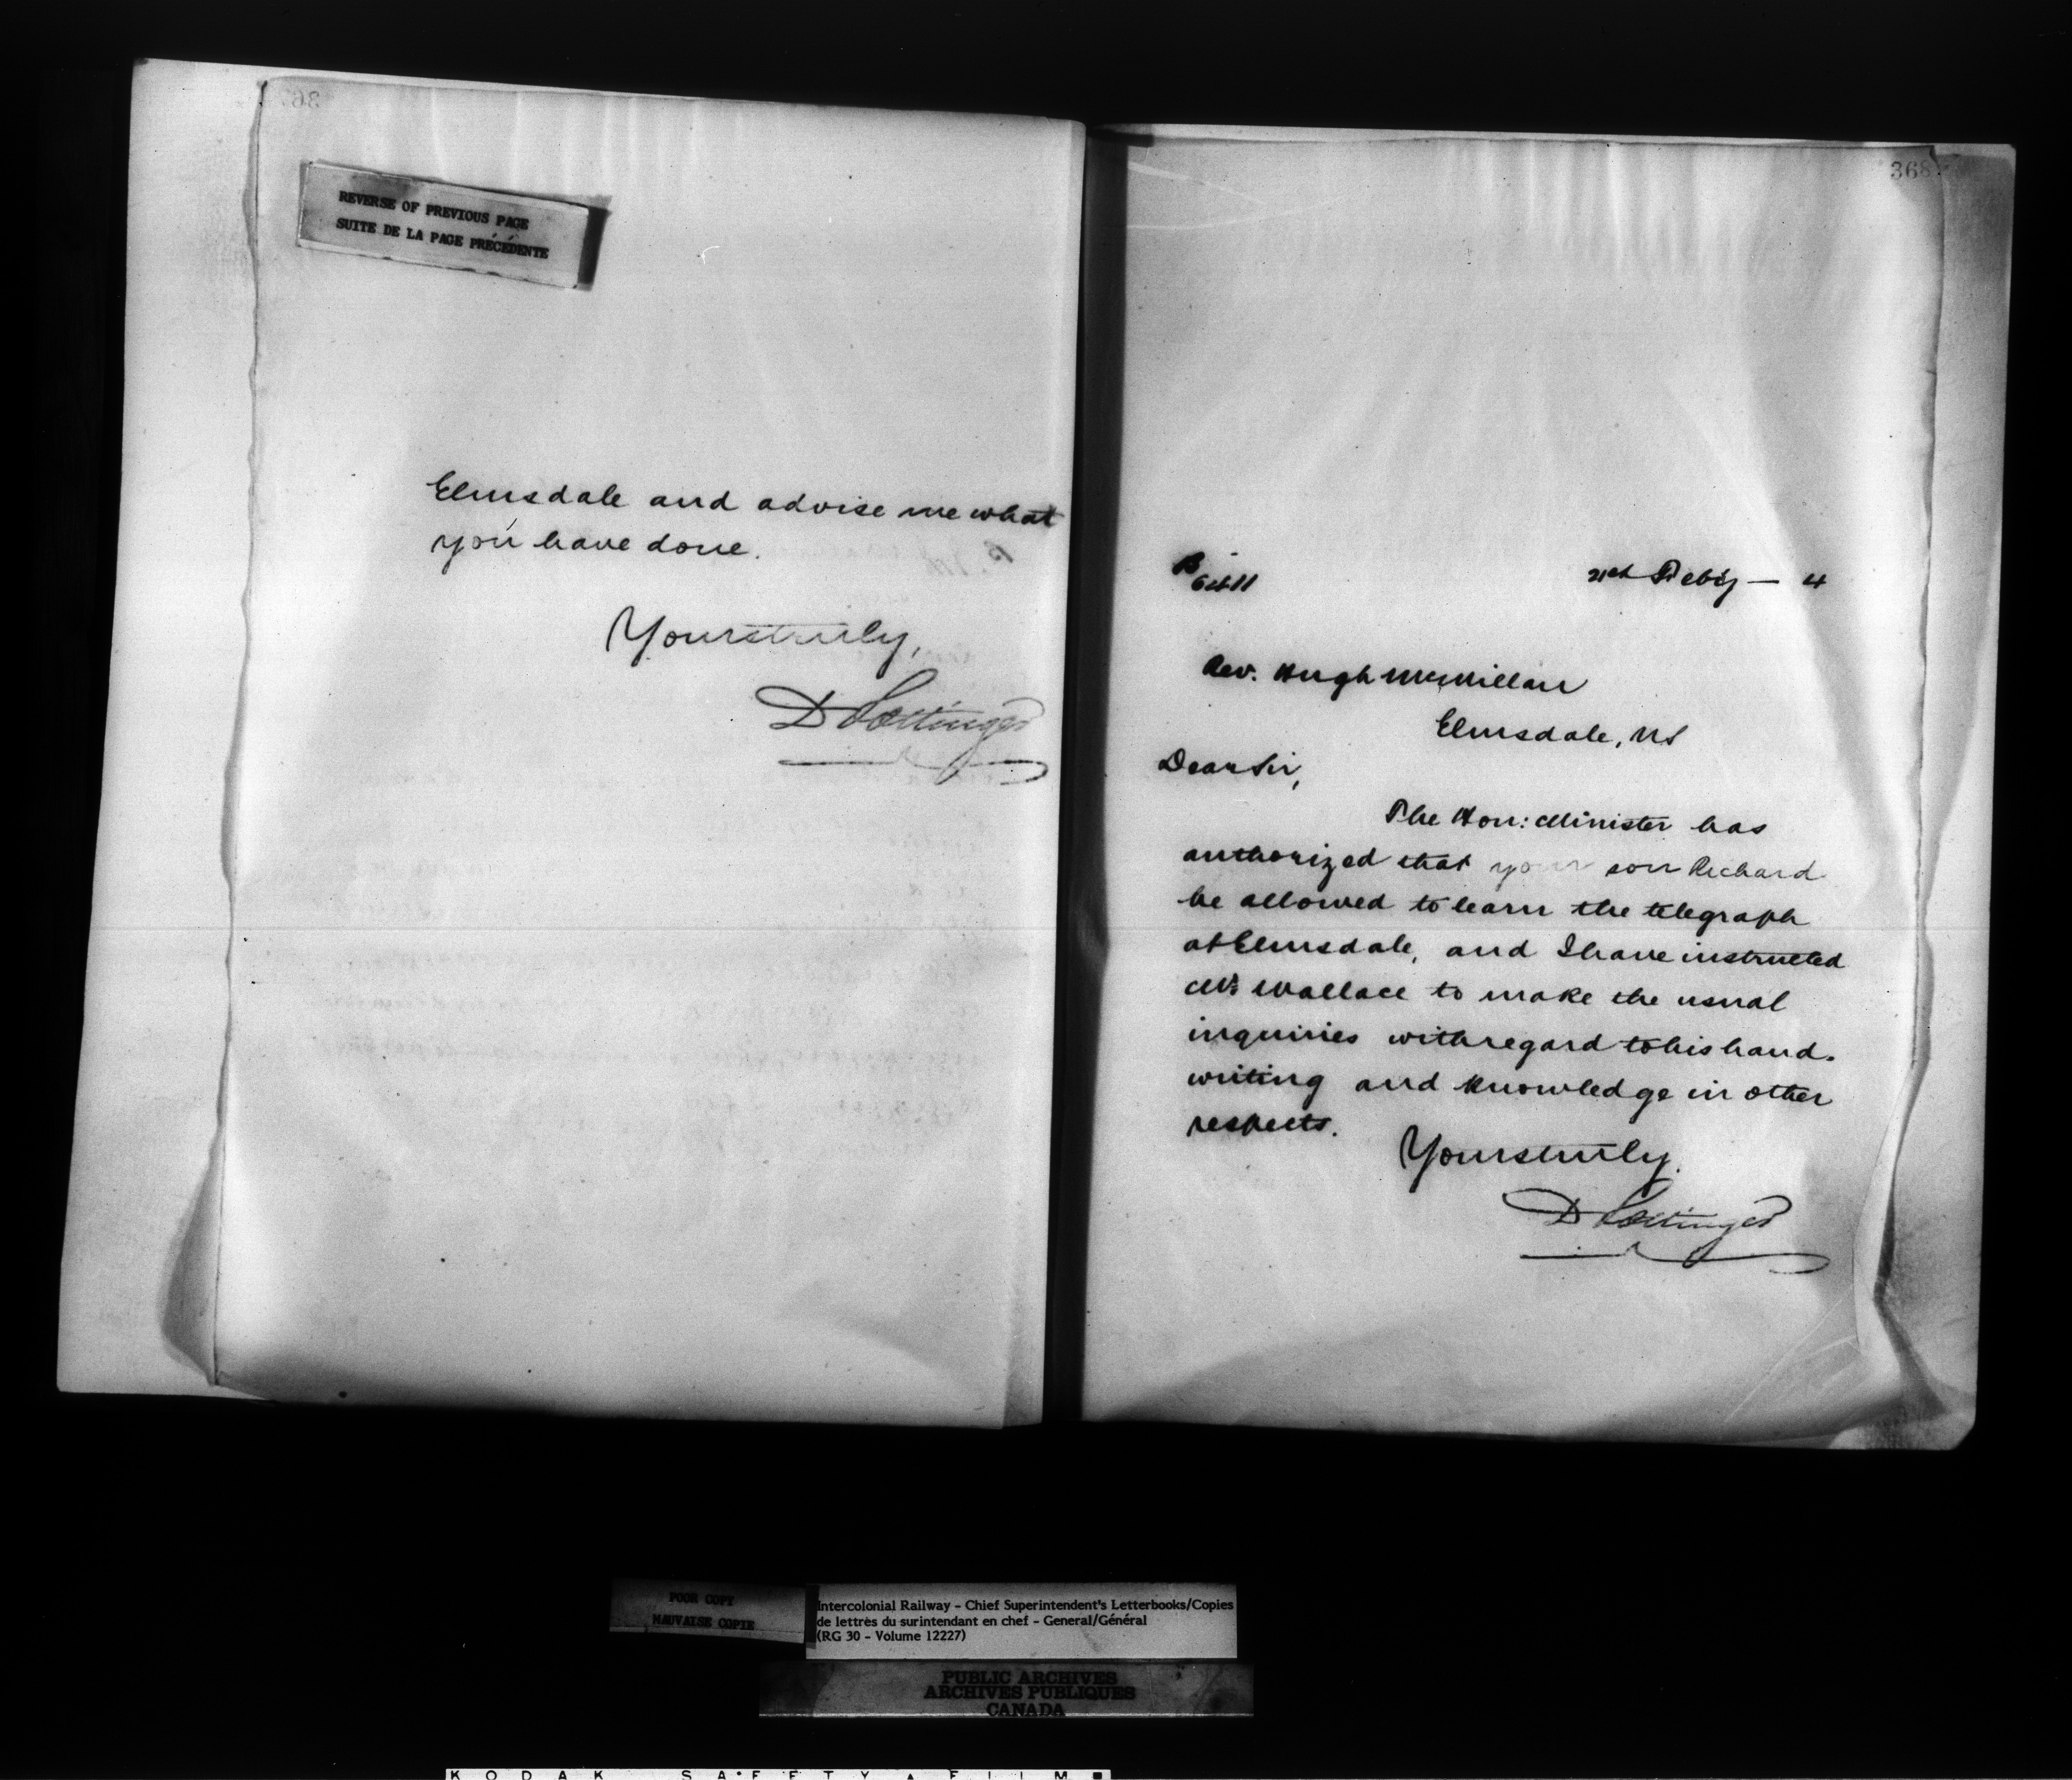 REVERSE OF PREVIOUS PAGE
SUITE DE LA PAGE PRÉCÉDENTE
Elmsdale and advise me what
you have done.
Yours truly,
D Pottinger
368
21st Feby — 4
Rev. Hugh McMillan
Elmsdale, NS
Dear Sir,
The Hon: Minister has
authorized that your son Richard
be allowed to learn the telegraph
at Elmsdale, and I have instructed
Mr Wallace to make the usual
inquiries with regard to his hand-
writing and knowledge in other
respects.
Yours truly.
D Pottinger
POOR COPY
MAUVAISE COPIE
Intercolonial Railway - Chief Superintendent's Letterbooks/Copies
de lettres du surintendant en chef - General/Général
(RG 30 - Volume 12227)
PUBLIC ARCHIVES
ARCHIVES PUBLIQUES
CANADA
KODAK SAFETY FILM